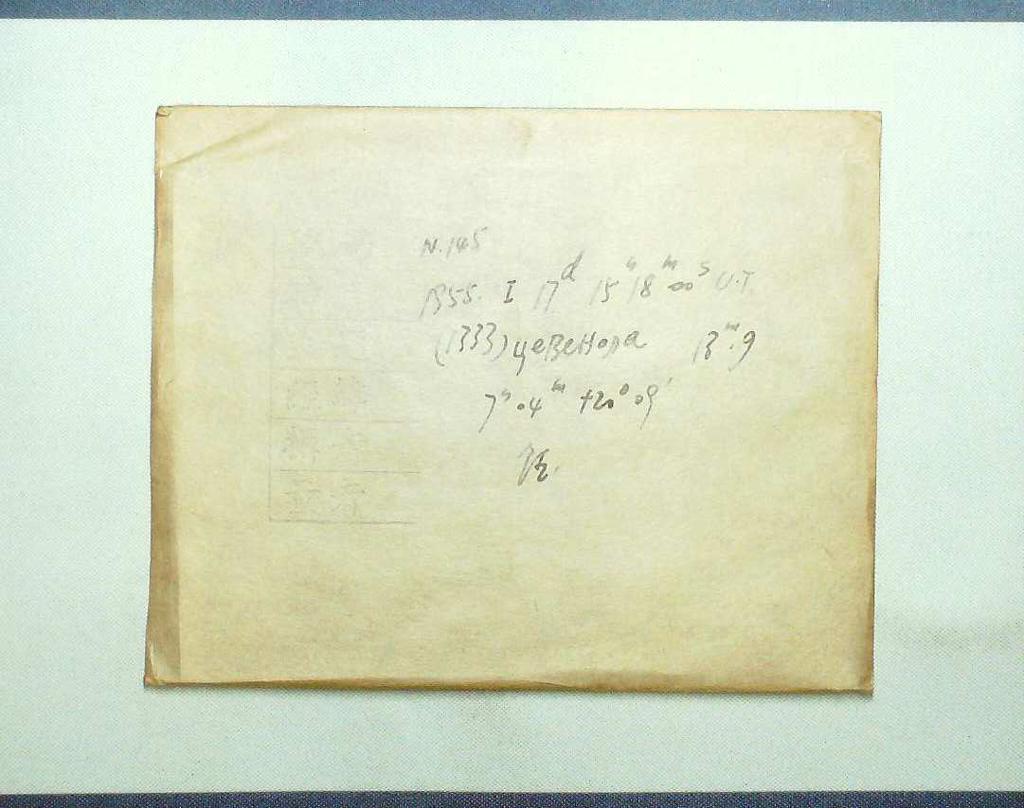 N. 145
1955. I 17ᵈ 15ʰ 18ᵐ 00ˢ U.T.
(1333) Цевенола 13ᵐ.9
7ʰ 04ᵐ +20° 09′